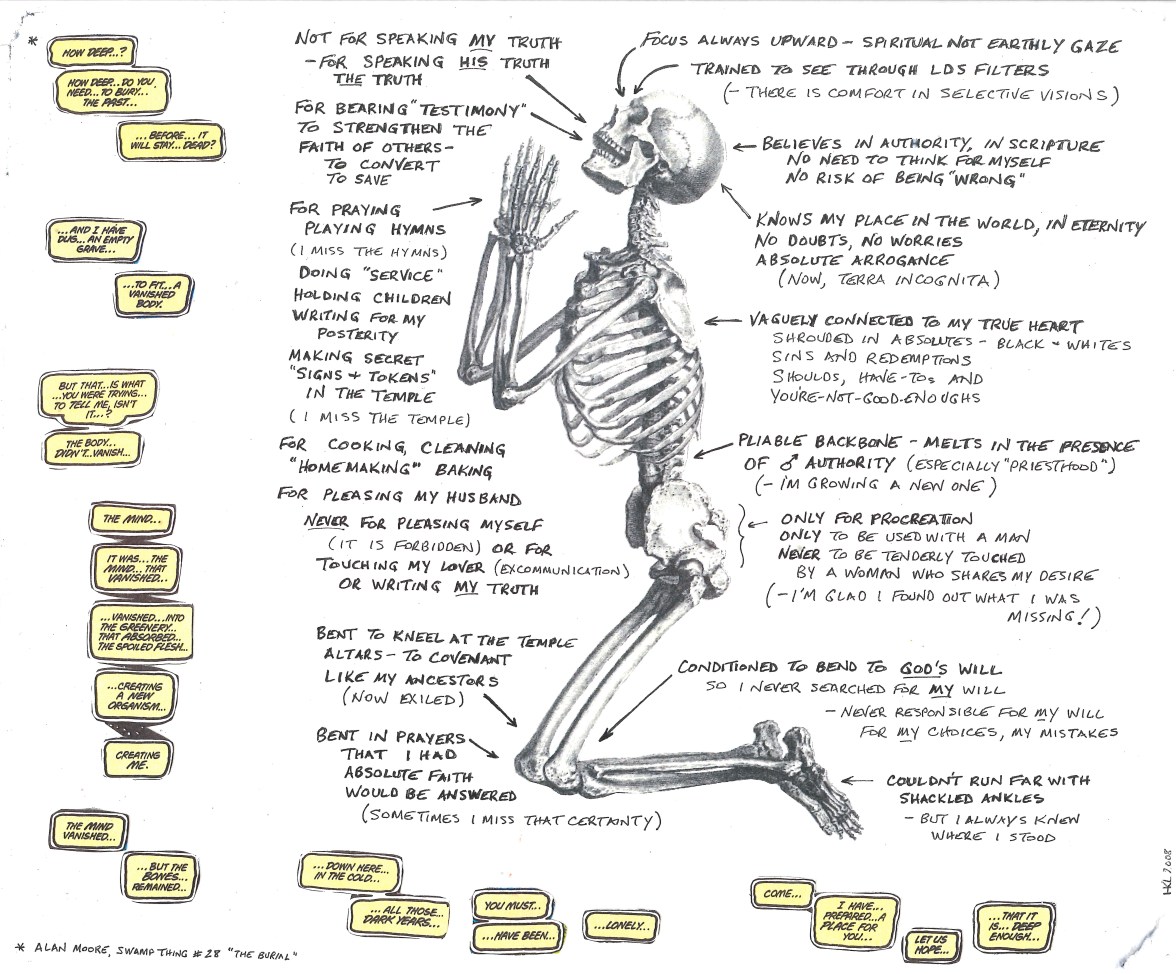 *
HOW DEEP...?
HOW DEEP...DO YOU
NEED...TO BURY...
THE PAST...
...BEFORE...IT
WILL STAY...DEAD?
...AND I HAVE
DUG...AN EMPTY
GRAVE...
...TO FIT...A
VANISHED
BODY.
BUT THAT...IS WHAT
...YOU WERE TRYING...
TO TELL ME, ISN'T
IT...?
THE BODY...
DIDN'T...VANISH...
THE MIND...
IT WAS...THE
MIND...THAT
VANISHED...
...VANISHED...INTO
THE GREENERY...
THAT ABSORBED...
THE SPOILED FLESH...
...CREATING
A NEW
ORGANISM...
CREATING
ME.
THE MIND
VANISHED...
...BUT THE
BONES...
REMAINED...
NOT FOR SPEAKING MY TRUTH
- FOR SPEAKING HIS TRUTH
THE TRUTH
FOR BEARING "TESTIMONY"
TO STRENGTHEN THE
FAITH OF OTHERS -
TO CONVERT
TO SAVE
FOR PRAYING
PLAYING HYMNS
(I MISS THE HYMNS)
DOING "SERVICE"
HOLDING CHILDREN
WRITING FOR MY
POSTERITY
MAKING SECRET
"SIGNS + TOKENS"
IN THE TEMPLE
(I MISS THE TEMPLE)
FOR COOKING, CLEANING
"HOMEMAKING" BAKING
FOR PLEASING MY HUSBAND
NEVER FOR PLEASING MYSELF
(IT IS FORBIDDEN) OR FOR
TOUCHING MY LOVER (EXCOMMUNICATION)
OR WRITING MY TRUTH
BENT TO KNEEL AT THE TEMPLE
ALTARS - TO COVENANT
LIKE MY ANCESTORS
(NOW EXILED)
BENT IN PRAYERS
THAT I HAD
ABSOLUTE FAITH
WOULD BE ANSWERED
(SOMETIMES I MISS THAT CERTAINTY)
FOCUS ALWAYS UPWARD - SPIRITUAL NOT EARTHLY GAZE
TRAINED TO SEE THROUGH LDS FILTERS
(- THERE IS COMFORT IN SELECTIVE VISIONS)
BELIEVES IN AUTHORITY, IN SCRIPTURE
NO NEED TO THINK FOR MYSELF
NO RISK OF BEING "WRONG"
KNOWS MY PLACE IN THE WORLD, IN ETERNITY
NO DOUBTS, NO WORRIES
ABSOLUTE ARROGANCE
(NOW, TERRA INCOGNITA)
VAGUELY CONNECTED TO MY TRUE HEART
SHROUDED IN ABSOLUTES - BLACK + WHITES
SINS AND REDEMPTIONS
SHOULDS, HAVE-TOs AND
YOU'RE-NOT-GOOD-ENOUGHS
PLIABLE BACKBONE - MELTS IN THE PRESENCE
OF ♂ AUTHORITY (ESPECIALLY "PRIESTHOOD")
(- I'M GROWING A NEW ONE)
ONLY FOR PROCREATION
ONLY TO BE USED WITH A MAN
NEVER TO BE TENDERLY TOUCHED
BY A WOMAN WHO SHARES MY DESIRE
(- I'M GLAD I FOUND OUT WHAT I WAS
MISSING!)
CONDITIONED TO BEND TO GOD'S WILL
SO I NEVER SEARCHED FOR MY WILL
- NEVER RESPONSIBLE FOR MY WILL
FOR MY CHOICES, MY MISTAKES
COULDN'T RUN FAR WITH
SHACKLED ANKLES
- BUT I ALWAYS KNEW
WHERE I STOOD
...DOWN HERE...
IN THE COLD...
...ALL THOSE...
DARK YEARS...
YOU MUST...
...HAVE BEEN...
...LONELY...
COME...
I HAVE...
PREPARED...A
PLACE FOR
YOU...
LET US
HOPE...
...THAT IT
IS... DEEP
ENOUGH...
HKL 2008
* ALAN MOORE, SWAMP THING #28 "THE BURIAL"